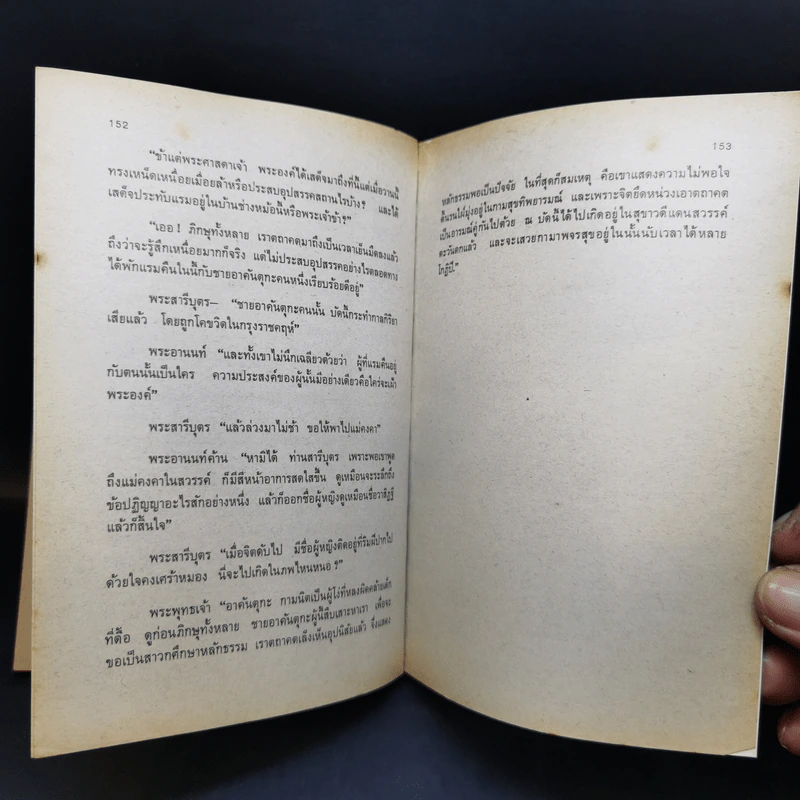 152
“ข้าแต่พระศาสดาเจ้า พระองค์ได้เสด็จมาถึงที่นี้แต่เมื่อวานนี้
ทรงเหน็ดเหนื่อยเมื่อยล้าหรือประสบอุปสรรคสถานไรบ้าง? และได้
เสด็จประทับแรมอยู่ในบ้านช่างหม้อนี้หรือพระเจ้าข้า?”
“เออ! ภิกษุทั้งหลาย เราตถาคตมาถึงเป็นเวลาเย็นมืดลงแล้ว
ถึงว่าจะรู้สึกเหนื่อยมากก็จริง แต่ไม่ประสบอุปสรรคอย่างไรตลอดทาง
ได้พักแรมคืนในนี้กับชายอาคันตุกะคนหนึ่งเรียบร้อยดีอยู่”
พระสารีบุตร– “ชายอาคันตุกะคนนั้น บัดนี้กระทำกาลกิริยา
เสียแล้ว โดยถูกโคขวิดในกรุงราชคฤห์”
พระอานนท์ “และทั้งเขาไม่นึกเฉลียวด้วยว่า ผู้ที่แรมคืนอยู่
กับตนนั้นเป็นใคร ความประสงค์ของผู้นั้นมีอย่างเดียวคือใคร่จะเฝ้า
พระองค์”
พระสารีบุตร “แล้วล่วงมาไม่ช้า ขอให้พาไปแม่คงคา”
พระอานนท์ค้าน “หามิได้ ท่านสารีบุตร เพราะพอเขาพูด
ถึงแม่คงคาในสวรรค์ ก็มีสีหน้าอาการสดใสขึ้น ดูเหมือนจะระลึกถึง
ข้อปฏิญญาอะไรสักอย่างหนึ่ง แล้วก็ออกชื่อผู้หญิงดูเหมือนชื่อวาสิฏฐี
แล้วก็สิ้นใจ”
พระสารีบุตร “เมื่อจิตดับไป มีชื่อผู้หญิงติดอยู่ที่ริมฝีปากไป
ด้วยใจคงเศร้าหมอง นี่จะไปเกิดในภพไหนหนอ?”
พระพุทธเจ้า “อาคันตุกะ กามนิตเป็นผู้โง่ที่หลงผิดคล้ายเด็ก
ที่ดื้อ ดูก่อนภิกษุทั้งหลาย ชายอาคันตุกะผู้นี้สืบเสาะหาเรา เพื่อจะ
ขอเป็นสาวกศึกษาหลักธรรม เราตถาคตเล็งเห็นอุปนิสัยแล้ว จึงแสดง
153
หลักธรรมพอเป็นปัจจัย ในที่สุดก็สมเหตุ คือเขาแสดงความไม่พอใจ
ดิ้นรนใฝ่มุ่งอยู่ในกามสุขทิพยารมณ์ และเพราะจิตยึดหน่วงเอาตถาคต
เป็นอารมณ์คู่กันไปด้วย ณ บัดนี้ได้ไปเกิดอยู่ในสุขาวดีแดนสวรรค์
ตะวันตกแล้ว และจะเสวยกามาพจรสุขอยู่ในนั้นนับเวลาได้หลาย
โกฏิปี”